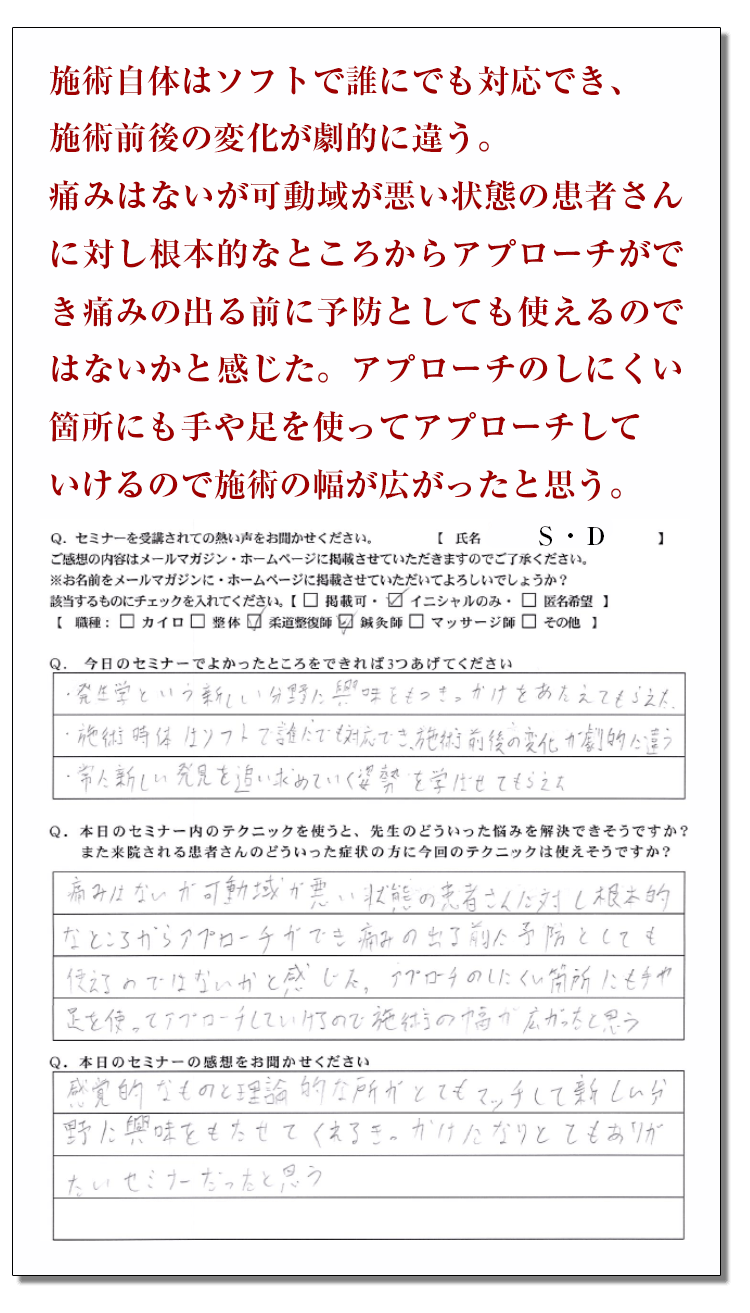 施術自体はソフトで誰にでも対応でき、
施術前後の変化が劇的に違う。
痛みはないが可動域が悪い状態の患者さん
に対し根本的なところからアプローチがで
き痛みの出る前に予防としても使えるので
はないかと感じた。アプローチのしにくい
箇所にも手や足を使ってアプローチして
いけるので施術の幅が広がったと思う。
Q．セミナーを受講されての熱い声をお聞かせください。　【 氏名　S・D　】
ご感想の内容はメールマガジン・ホームページに掲載させていただきますのでご了承ください。
※お名前をメールマガジンに・ホームページに掲載させていただいてよろしいでしょうか？
該当するものにチェックを入れてください。【 □ 掲載可・ ☑ イニシャルのみ・ □ 匿名希望 】
【 職種：□ カイロ □ 整体 ☑ 柔道整復師 ☑ 鍼灸師 □ マッサージ師 □ その他 】
Q．　今日のセミナーでよかったところをできれば3つあげてください
・発生学という新しい分野に興味をもつきっかけをあたえてもらえた。
・施術時体はソフトで誰にでも対応でき、施術前後の変化が劇的に違う
・常に新しい発見を追い求めていく姿勢を学ばせてもらえた
Q．本日のセミナー内のテクニックを使うと、先生のどういった悩みを解決できそうですか？
また来院される患者さんのどういった症状の方に今回のテクニックは使えそうですか？
痛みはないが可動域が悪い状態の患者さんに対し根本的
なところからアプローチができ痛みの出る前に予防としても
使えるのではないかと感じた。アプローチのしにくい箇所にも手や
足を使ってアプローチしていけるので施術の幅が広がったと思う
Q．本日のセミナーの感想をお聞かせください
感覚的なものと理論的な所がとてもマッチして新しい分
野に興味をもたせてくれるきっかけになりとてもありが
たいセミナーだったと思う